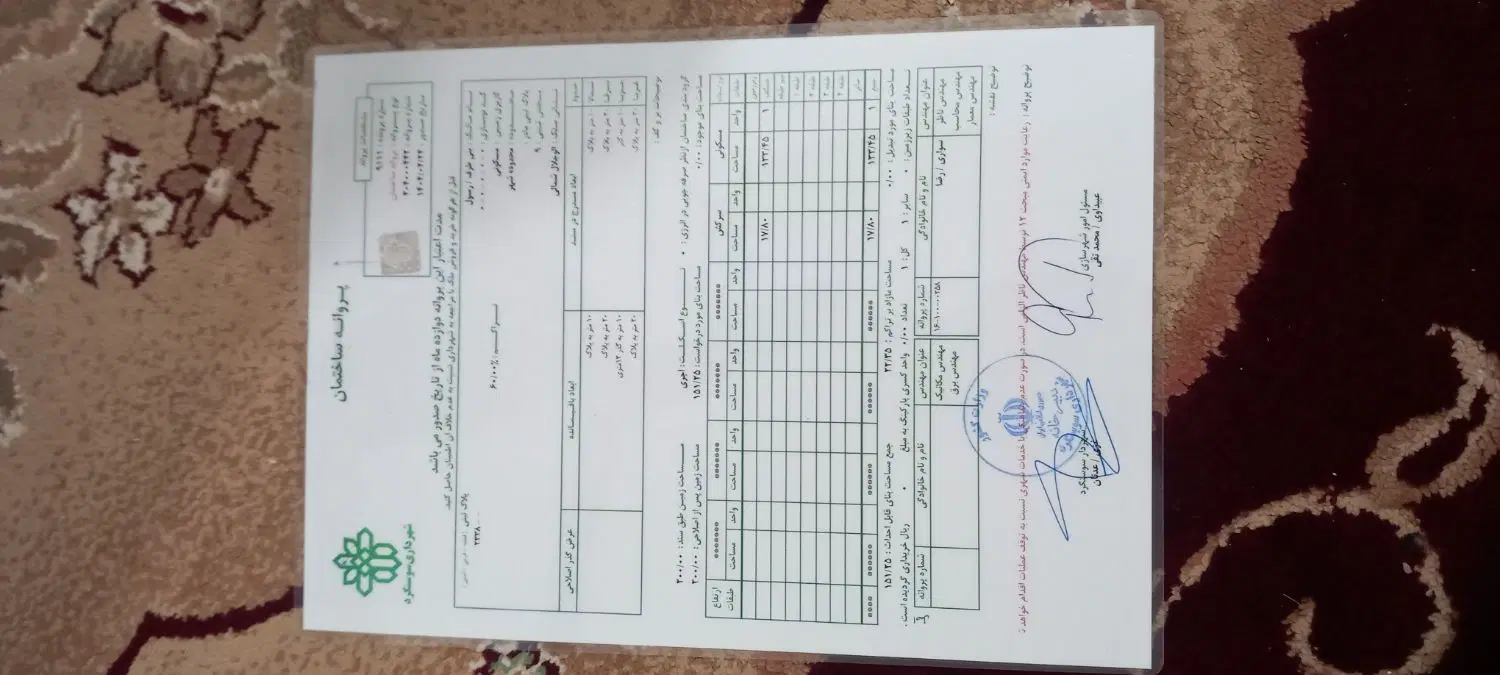 پروانه ساختمان
شهرداری سوسنگرد
مشخصات پروانه
شماره پرونده : ۹۱۱۱
نوع پروانه : پروانه ساختمان
شماره پروانه : ۲۰۴۰۰۰۴۴۲
تاریخ صدور :
مدت اعتبار این پروانه دوازده ماه از تاریخ صدور می باشد
قبل از هرگونه خرید و فروش ملک با مراجعه به شهرداری نسبت به عدم خلاف آن اطمینان حاصل کنید.
نام مالک : بی طرف / رسول
پلاک ثبتی
۲۳۳۸
کد نوسازی :
کاربری زمین : مسکونی
تراکم : ۶۰/۰۰%
محدوده : محدوده شهر
نشانی ملک : ابوجلال شمالی
حدود
ابعاد مندرج در سند
ابعاد باقیمانده
عرض گذر اصلاحی
شمالا
۱۰ متر به پلاک
۱۰ متر به پلاک
شرقا
۲۰ متر به پلاک
۲۰ متر به پلاک
جنوبا
۱۰ متر به گذر
۱۰ متر به گذر ۱۲متری
غربا
۲۰ متر به پلاک
۲۰ متر به پلاک
توضیحات بر و کف :
گروه بندی ساختمان ازنظر صرفه جویی در انرژی : ۰
نوع اسکلت : آجری
مساحت زمین طبق سند : ۲۰۰/۰۰
مساحت بنای موجود : ۰/۰۰
مساحت بنای مورد درخواست : ۱۵۱/۲۵
مساحت زمین پس از اصلاحی : ۲۰۰/۰۰
مسکونی
سرکش
*******
*******
*******
*******
ارتفاع طبقات
طبقات
واحد
مساحت
واحد
مساحت
واحد
مساحت
واحد
مساحت
واحد
مساحت
واحد
مساحت
زیرزمین
همکف
۱
۱۳۳/۴۵
۱۷/۸۰
نیم طبقه
طبقه ۱
طبقه ۲
طبقه ۳
طبقه ۴
سایر
جمع
۱
۱۳۳/۴۵
۱۷/۸۰
******
******
******
******
****
مساحت بنای مورد تبدیل : ۰/۰۰
مساحت مازاد بر تراکم : ۲۲/۲۵
جمع مساحت بنای قابل احداث : ۱۵۱/۲۵
تعداد طبقات زیرزمین : ۰
سایر : ۱
کل : ۱
تعداد ۰/۰۰ واحد کسری پارکینگ به مبلغ ۰ ریال خریداری گردیده است .
عنوان مهندس
نام و نام خانوادگی
شماره پروانه
عنوان مهندس
نام و نام خانوادگی
شماره پروانه
مهندس ناظر
سواری / رضا
مهندس مکانیک
مهندس محاسب
مهندس برق
مهندس معمار
توضیح نقشه :
توضیح پروانه : رعایت موارد ایمنی مبحث ۱۲ توسط مهندس ناظر الزامی است.
مسئول امور شهرسازی
عبیداوی / محمد تقی
شهردار سوسنگرد